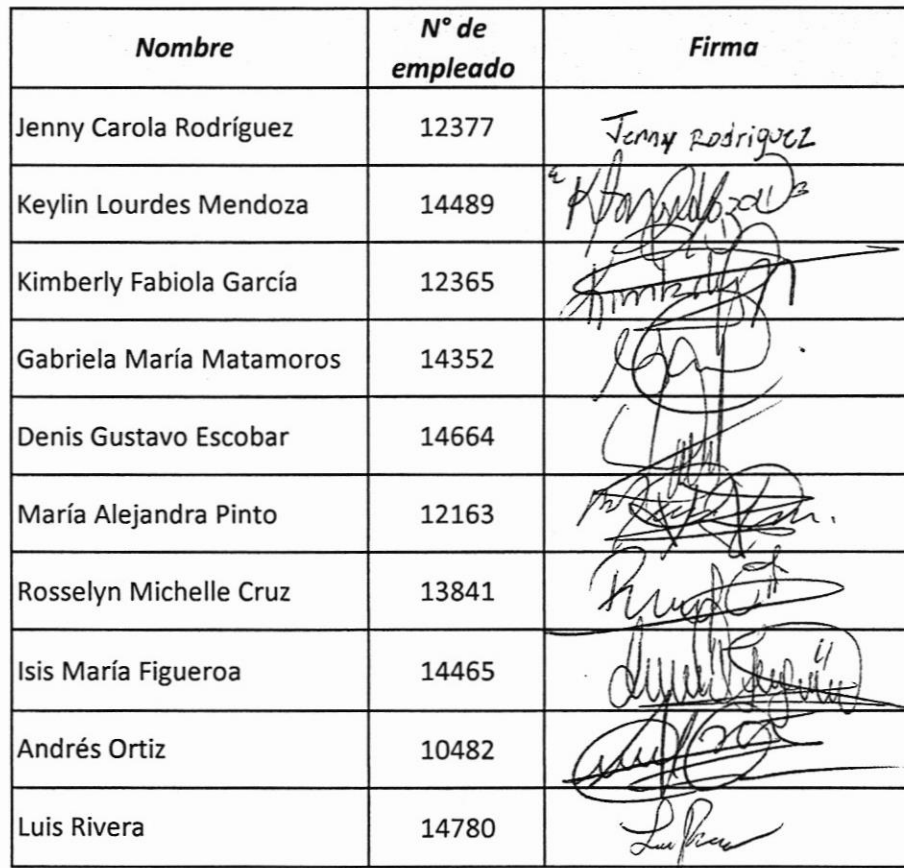 Nombre N° de empleado Firma
Jenny Carola Rodríguez 12377 Jenny Rodriguez
Keylin Lourdes Mendoza 14489
Kimberly Fabiola García 12365
Gabriela María Matamoros 14352
Denis Gustavo Escobar 14664
María Alejandra Pinto 12163
Rosselyn Michelle Cruz 13841
Isis María Figueroa 14465
Andrés Ortiz 10482
Luis Rivera 14780